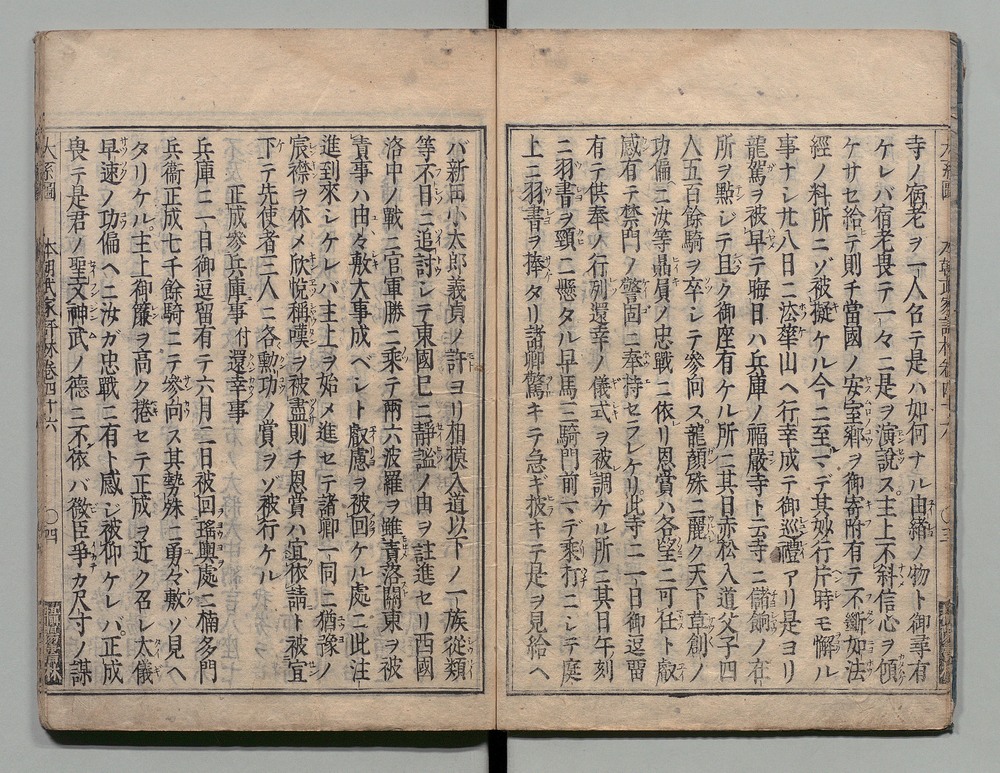 寺ノ宿老ヲ一人召テ是ハ如何ナル由緒ノ物ト御尋有
ケレバ宿老畏テ一々ニ是ヲ演說ス主上不斜信心ヲ傾
ケサセ給テ則チ當國ノ安室鄕ヲ御寄附有テ不斷如法
經ノ料所ニゾ被擬ケル今ニ至マデ其妙行片時モ懈ル
事ナシ廿八日ニ法華山ヘ行幸成テ御巡禮アリ是ヨリ
龍駕ヲ被早テ晦日ハ兵庫ノ福嚴寺ト云寺ニ儲餉ノ在
所ヲ點ジテ且ク御座有ケル所ニ其日赤松入道父子四
人五百餘騎ヲ卒シテ參向ス龍顏殊ニ麗ク天下草創ノ
功偏ニ汝等贔屓ノ忠戰ニ依リ恩賞ハ各望ニ可任ト叡
感有テ禁門ノ警固ニ奉持セラレケリ此寺ニ一日御逗留
有テ供奉ノ行列還幸ノ儀式ヲ被調ケル所ニ其日午刻
ニ羽書ヲ頸ニ懸タル早馬三騎門前マデ乘打ニシテ庭
上ニ羽書ヲ捧タリ諸卿驚キテ急ギ披キテ是ヲ見給ヘ
バ新田小太郎義貞ノ許ヨリ相模入道以下ノ一族從類
等不日ニ追討シテ東國巳ニ靜謐ノ由ヲ註進セリ西國
洛中ノ戰ニ官軍勝ニ乘テ兩六波羅ヲ雖責落關東ヲ被
責事ハ由々敷大事成ベシト叡慮ヲ被回ケル處ニ此注
進到來シケレバ主上ヲ始メ進セテ諸卿一同ニ猶豫ノ
宸襟ヲ休メ欣悅稱嘆ヲ被盡則チ恩賞ハ宜依請ト被宣
下テ先使者三人ニ各勳功ノ賞ヲゾ被行ケル
正成參兵庫事付還幸事
兵庫ニ一日御逗留有テ六月二日被回瑤輿處ニ楠多門
兵衞正成七千餘騎ニテ參向ス其勢殊ニ勇々敷ソ見ヘ
タリケル主上御簾ヲ高ク捲セテ正成ヲ近ク召レ大儀
早速ノ功偏ヘニ汝ガ忠戰ニ有ト感ジ被仰ケレバ正成
畏テ是君ノ聖文神武ノ德ニ不依バ微臣爭カ尺寸ノ謀
大系圖 本朝武家評林卷四十六 〇四